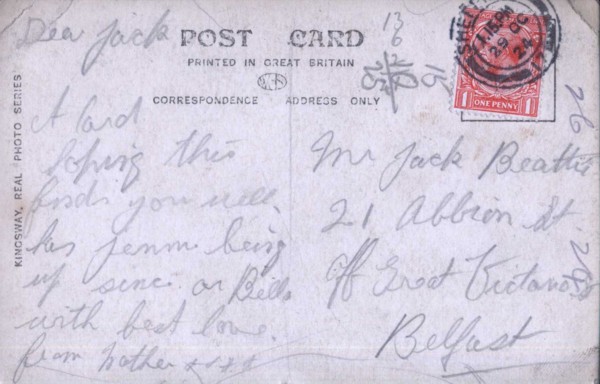 Dear Jack
POST CARD
PRINTED IN GREAT BRITAIN
CORRESPONDENCE ADDRESS ONLY
KINGSWAY, REAL PHOTO SERIES
A card
hoping this
finds you well,
has being
up since or Bella
with best love.
from Mother xxxx
Mr Jack Beattie
21 Albion St
off Great Victoria St
Belfast
13
6
15
26
7.15 PM
29 OC
24
1 ONE PENNY 1